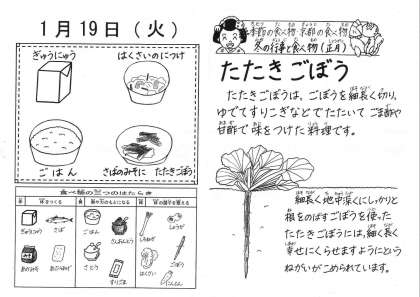 1月19日（火）
ぎゅうにゅう
はくさいのにつけ
ごはん
さばのみそに
たたきごぼう
食べ物の三つのはたらき
ぎゅうにゅう
さば
ごはん
さとう
すりごま
しょうが
ごぼう
はくさい
にんじん
季節の食べ物・京都の食べ物
冬の行事と食べ物（正月）
たたきごぼう
たたきごぼうは、ごぼうを細長く切り、
ゆでてすりこぎなどでたたいて ごま酢や
甘酢で 味をつけた 料理です。
細長く地中深くにしっかりと
根をのばすごぼうを使った
たたきごぼうには、細く長く
幸せにくらせますようにという
ねがいがこめられています。